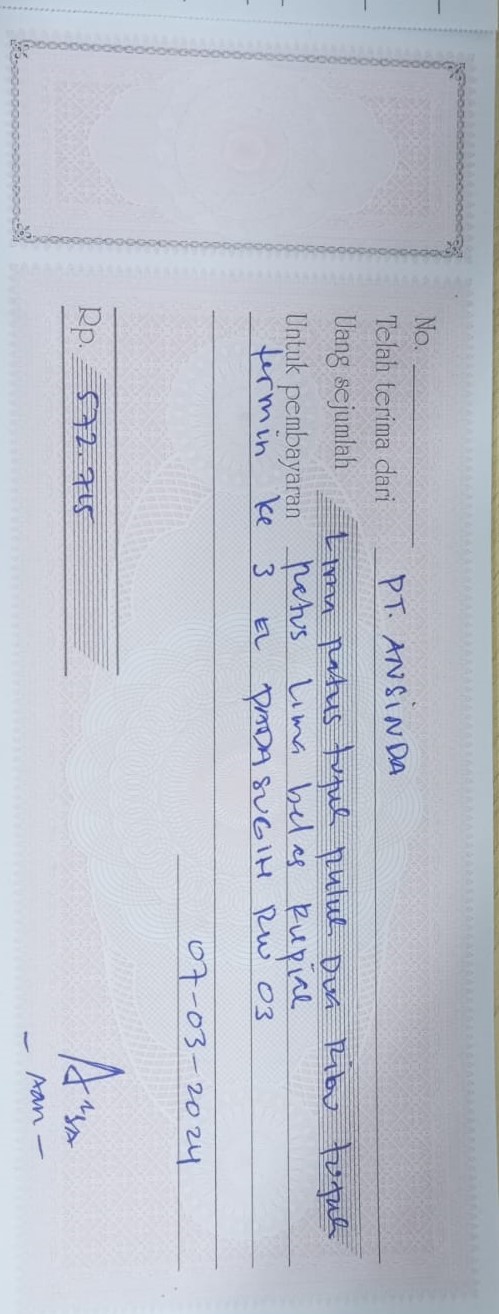 No.
Telah terima dari PT. ANSINDA
Uang sejumlah Lima ratus tujuh puluh Dua Ribu tujuh
Untuk pembayaran ratus Lima belas Rupiah
termin ke 3 EL PADASUGIH RW 03
07-03-2024
Rp. 572.715
- Aan -